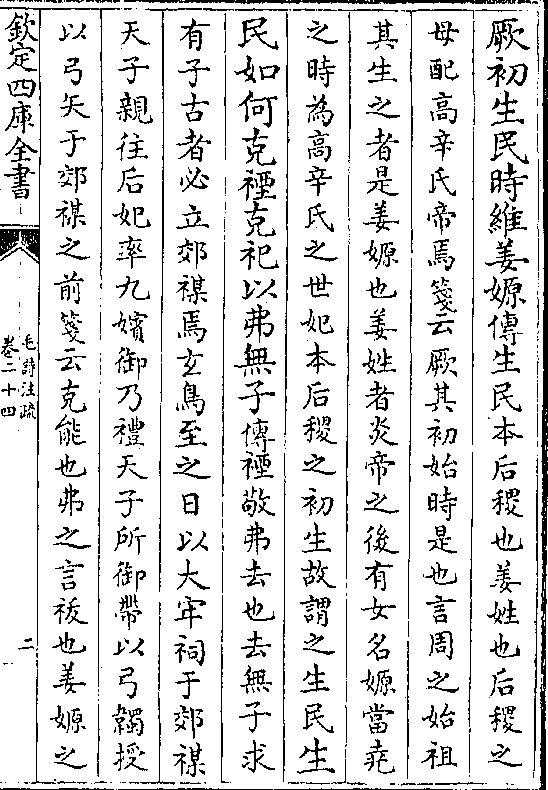 厥初生民時維姜嫄傳生民本后稷也姜姓也后稷之
母配高辛氏帝焉箋云厥其初始時是也言周之始祖
其生之者是姜嫄也姜姓者炎帝之後有女名嫄當堯
之時為高辛氏之世妃本后稷之初生故謂之生民生
民如何克禋克祀以弗無子傳禋敬弗去也去無子求
有子古者必立郊禖焉玄鳥至之日以大牢祠于郊禖
天子親往后妃率九嬪御乃禮天子所御帶以弓韣授
以弓矢于郊禖之前箋云克能也弗之言祓也姜嫄之
欽定四庫全書
毛詩注疏
卷二十四
二